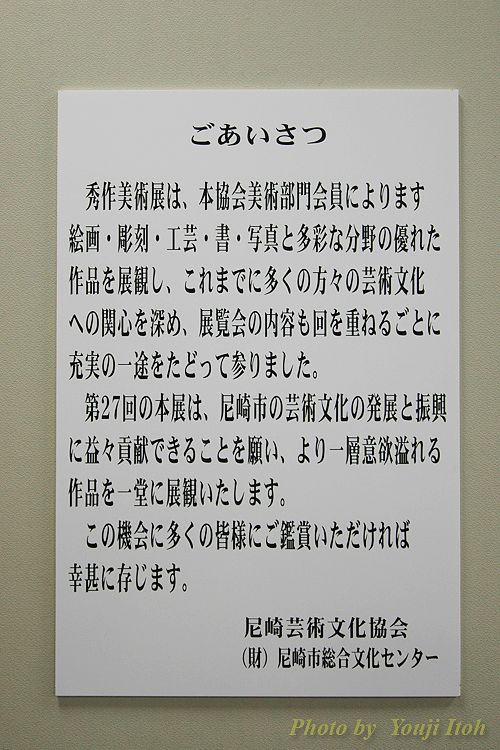 ごあいさつ
秀作美術展は、本協会美術部門会員によります
絵画・彫刻・工芸・書・写真と多彩な分野の優れた
作品を展観し、これまでに多くの方々の芸術文化
への関心を深め、展覧会の内容も回を重ねるごとに
充実の一途をたどって参りました。
第27回の本展は、尼崎市の芸術文化の発展と振興
に益々貢献できることを願い、より一層意欲溢れる
作品を一堂に展観いたします。
この機会に多くの皆様にご鑑賞いただければ
幸甚に存じます。
尼崎芸術文化協会
（財）尼崎市総合文化センター
Photo by Youji Itoh